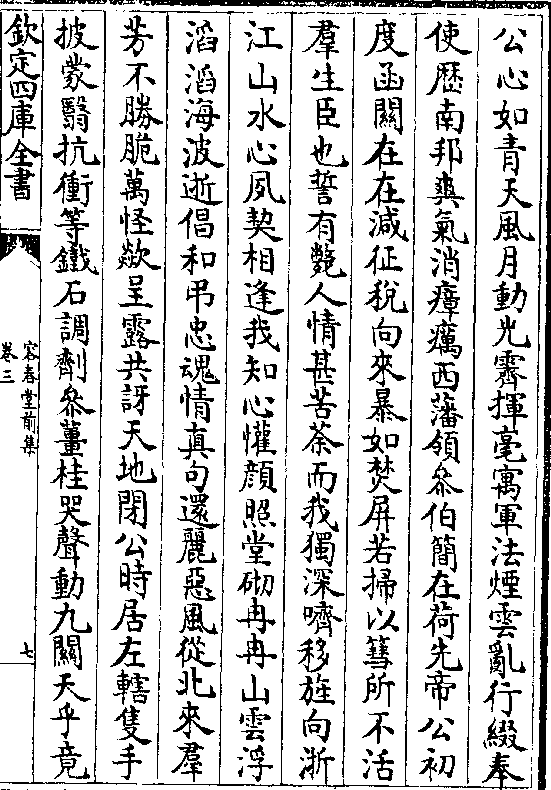 公心如青天風月動光霽揮毫寓軍法煙雲亂行綴奉
使歷南邦爽氣消瘴癘西藩領叅伯簡在荷先帝公初
度函關在在減征稅向來暴如焚屏若掃以篲所不活
羣生臣也誓有斃人情甚苦荼而我獨深嚌移旌向浙
江山水心夙契相逢我知心懽顏照堂砌冉冉山雲浮
滔滔海波逝倡和弔忠魂情真句還麗惡風從北來羣
芳不勝脆萬怪歘呈露共訝天地閉公時居左轄隻手
披蒙翳抗衝等鐵石調劑叅薑桂哭聲動九關天乎竟
欽定四庫全書
容春堂前集
卷三
七